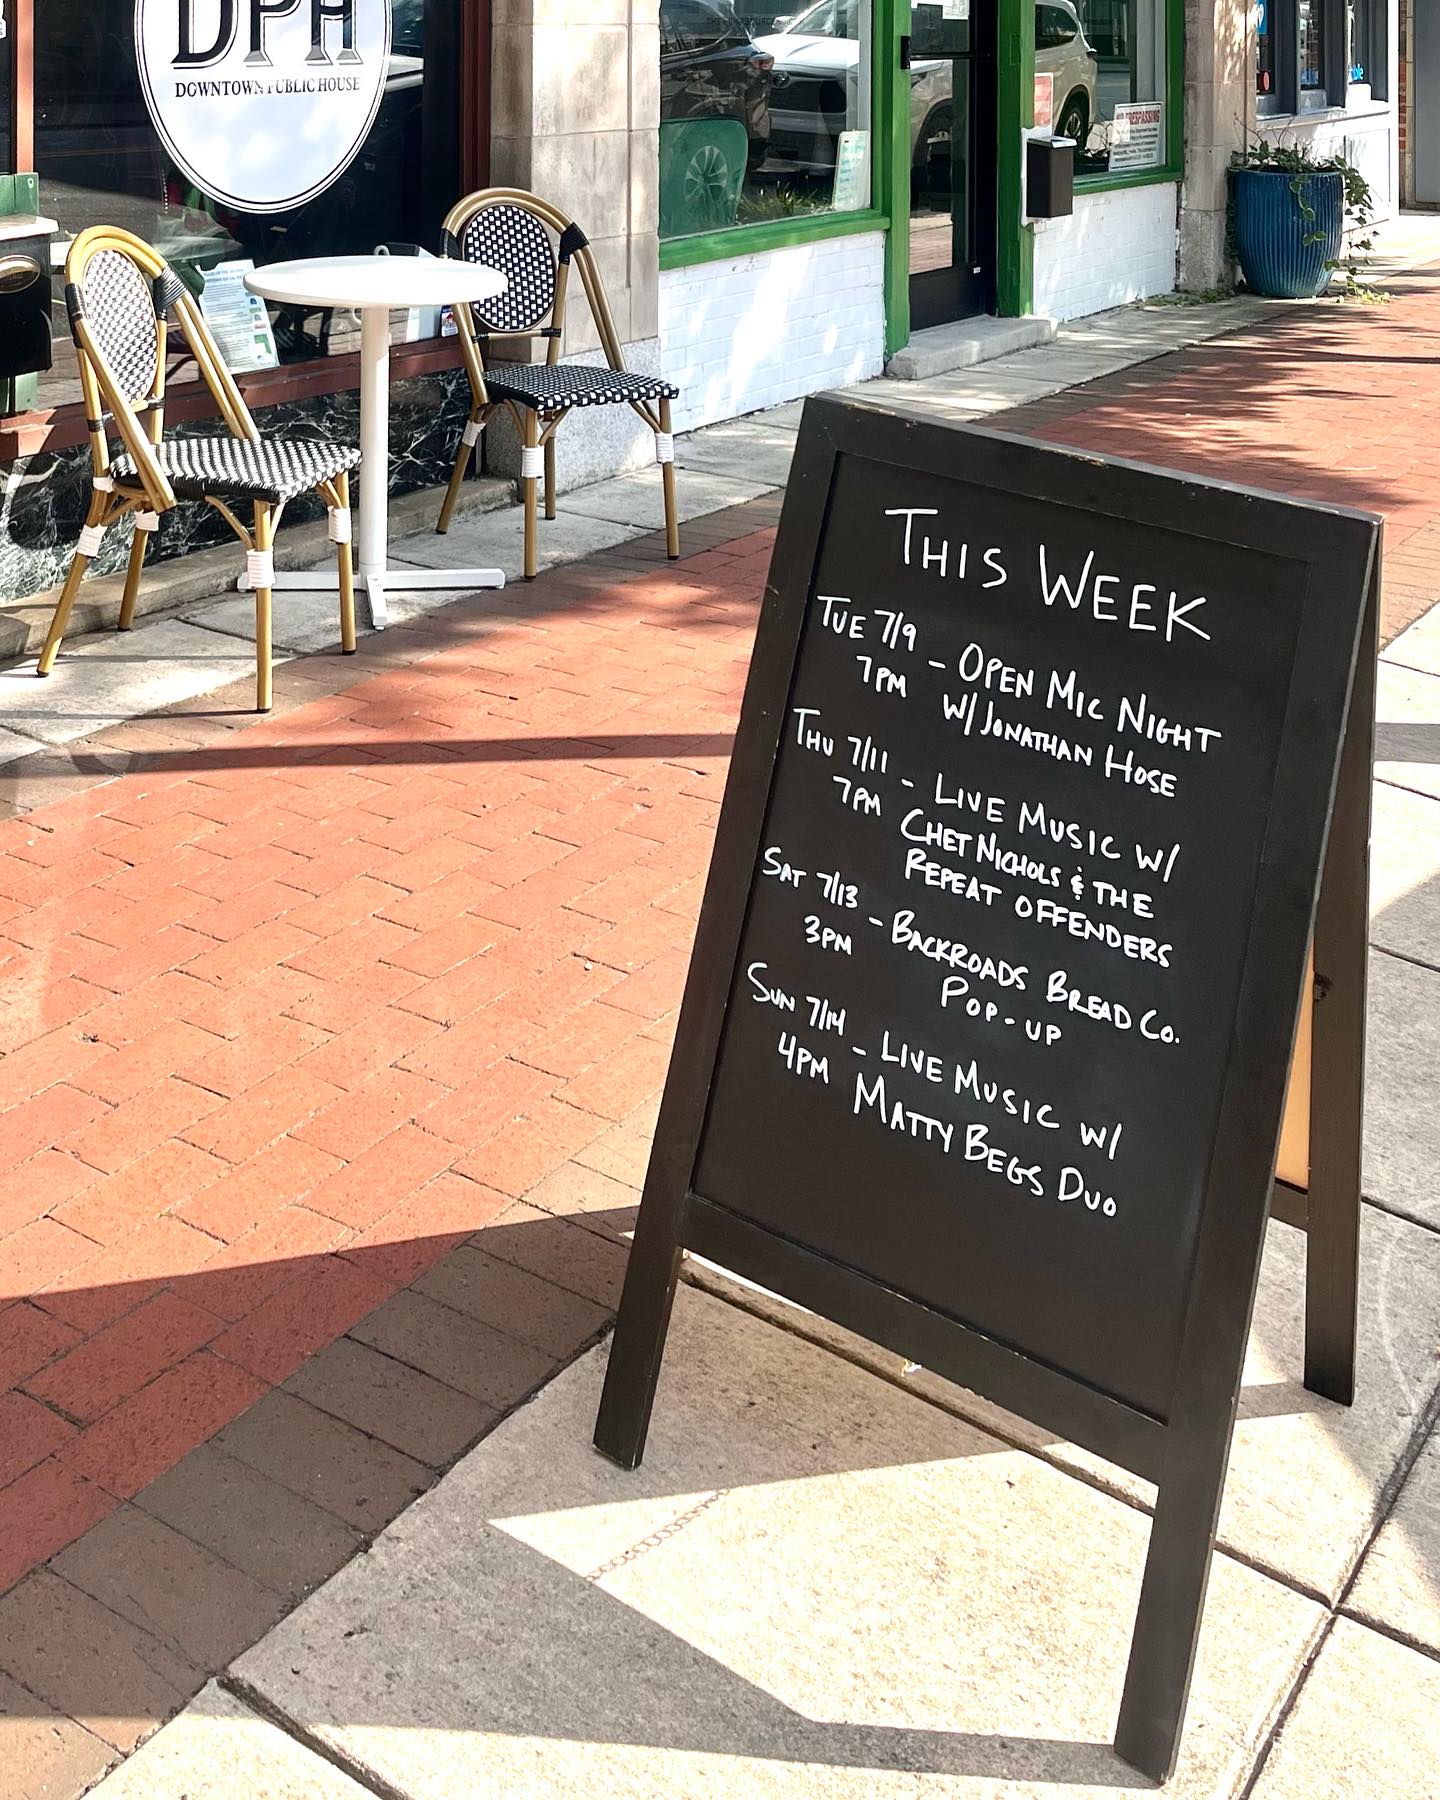 DPH
DOWNTOWN PUBLIC HOUSE
NO TRESPASSING
THIS WEEK
TUE 7/9 - OPEN MIC NIGHT
7PM W/ JONATHAN HOSE
THU 7/11 - LIVE MUSIC W/
7PM CHET NICHOLS & THE
REPEAT OFFENDERS
SAT 7/13 - BACKROADS BREAD CO.
3PM POP-UP
SUN 7/14 - LIVE MUSIC W/
4PM MATTY BEGS DUO